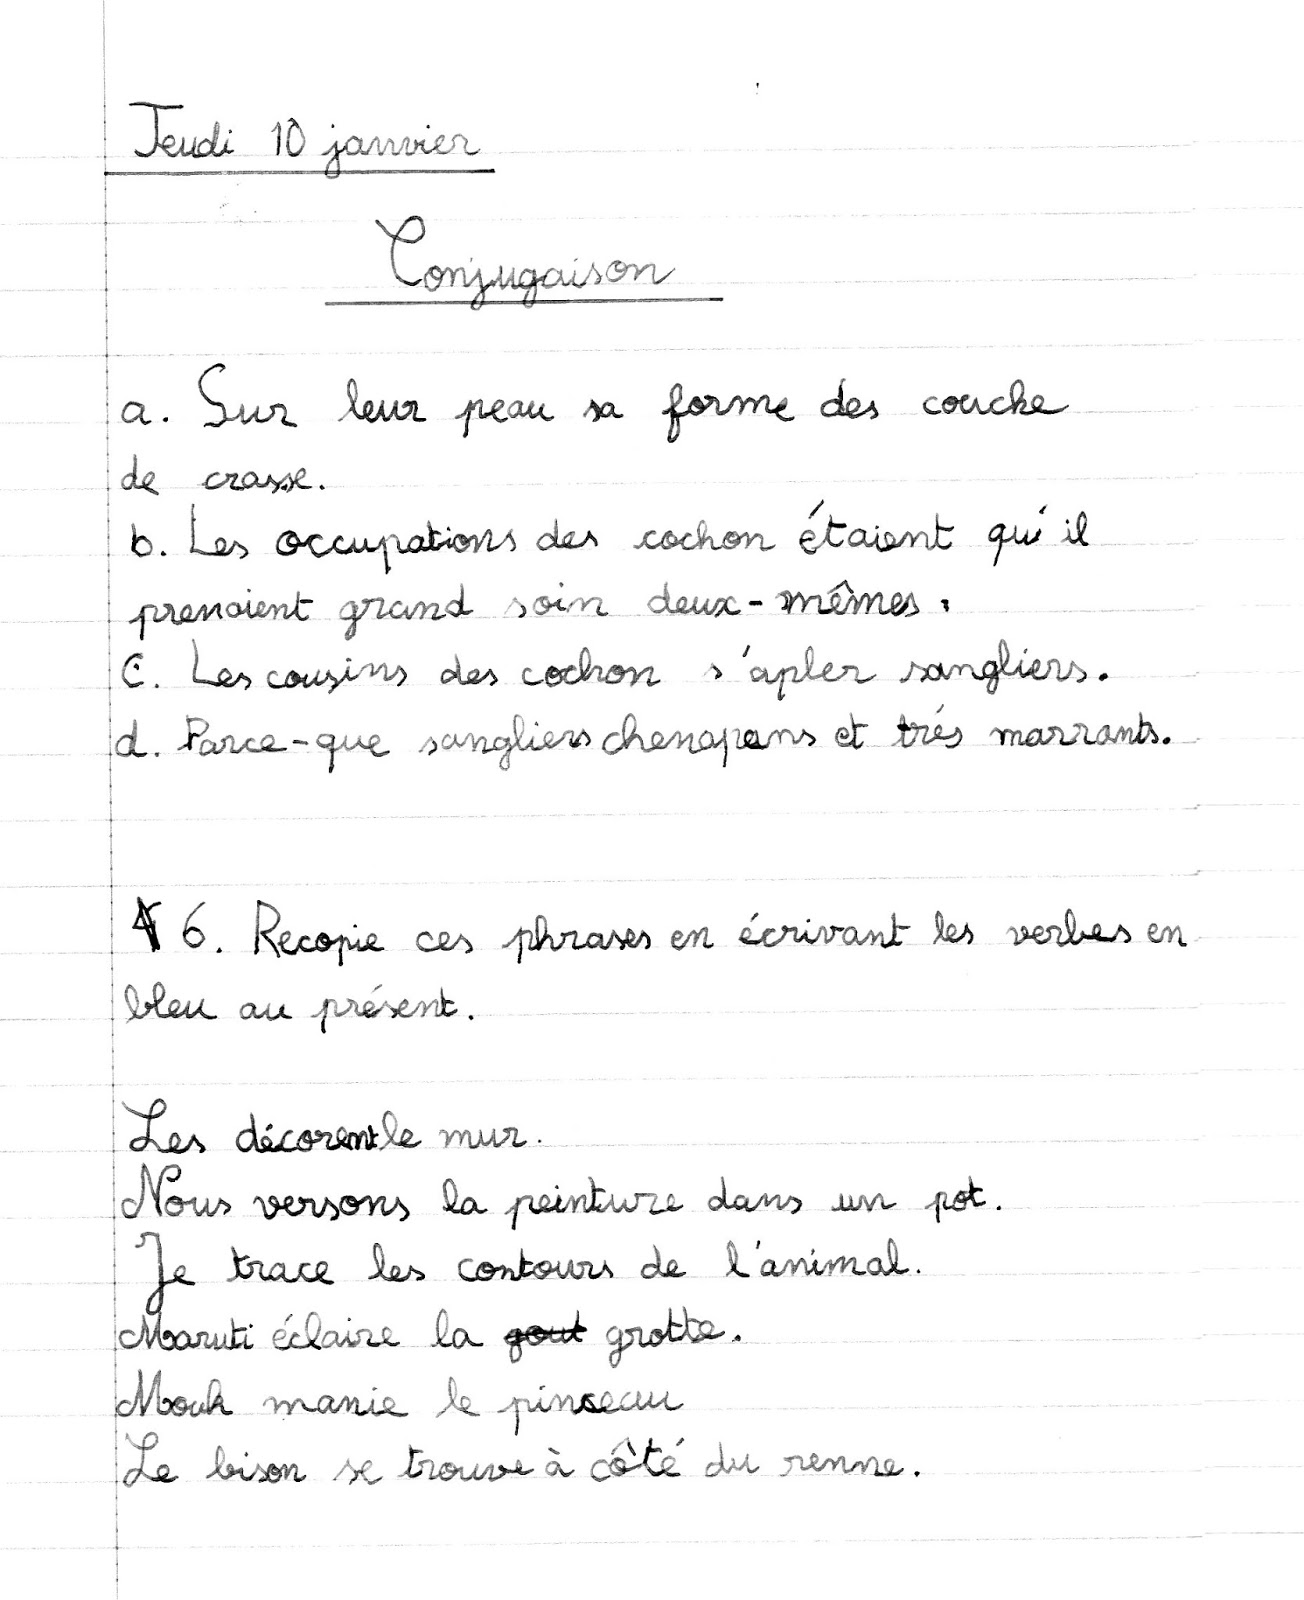 Jeudi 10 janvier
Conjugaison
a. Sur leur peau sa forme des couche
de crasse.
b. Les occupations des cochon étaient qu'il
prenaient grand soin deux-mêmes.
C. Les cousins des cochon s'apler sangliers.
d. Parce-que sangliers chenapans et trés marrants.
6. Recopie ces phrases en écrivant les verbes en
bleu au présent.
Les décorent le mur.
Nous versons la peinture dans un pot.
Je trace les contours de l'animal.
Maruti éclaire la gout grotte.
Mouk manie le pinseau
Le bison se trouve à côté du renne.